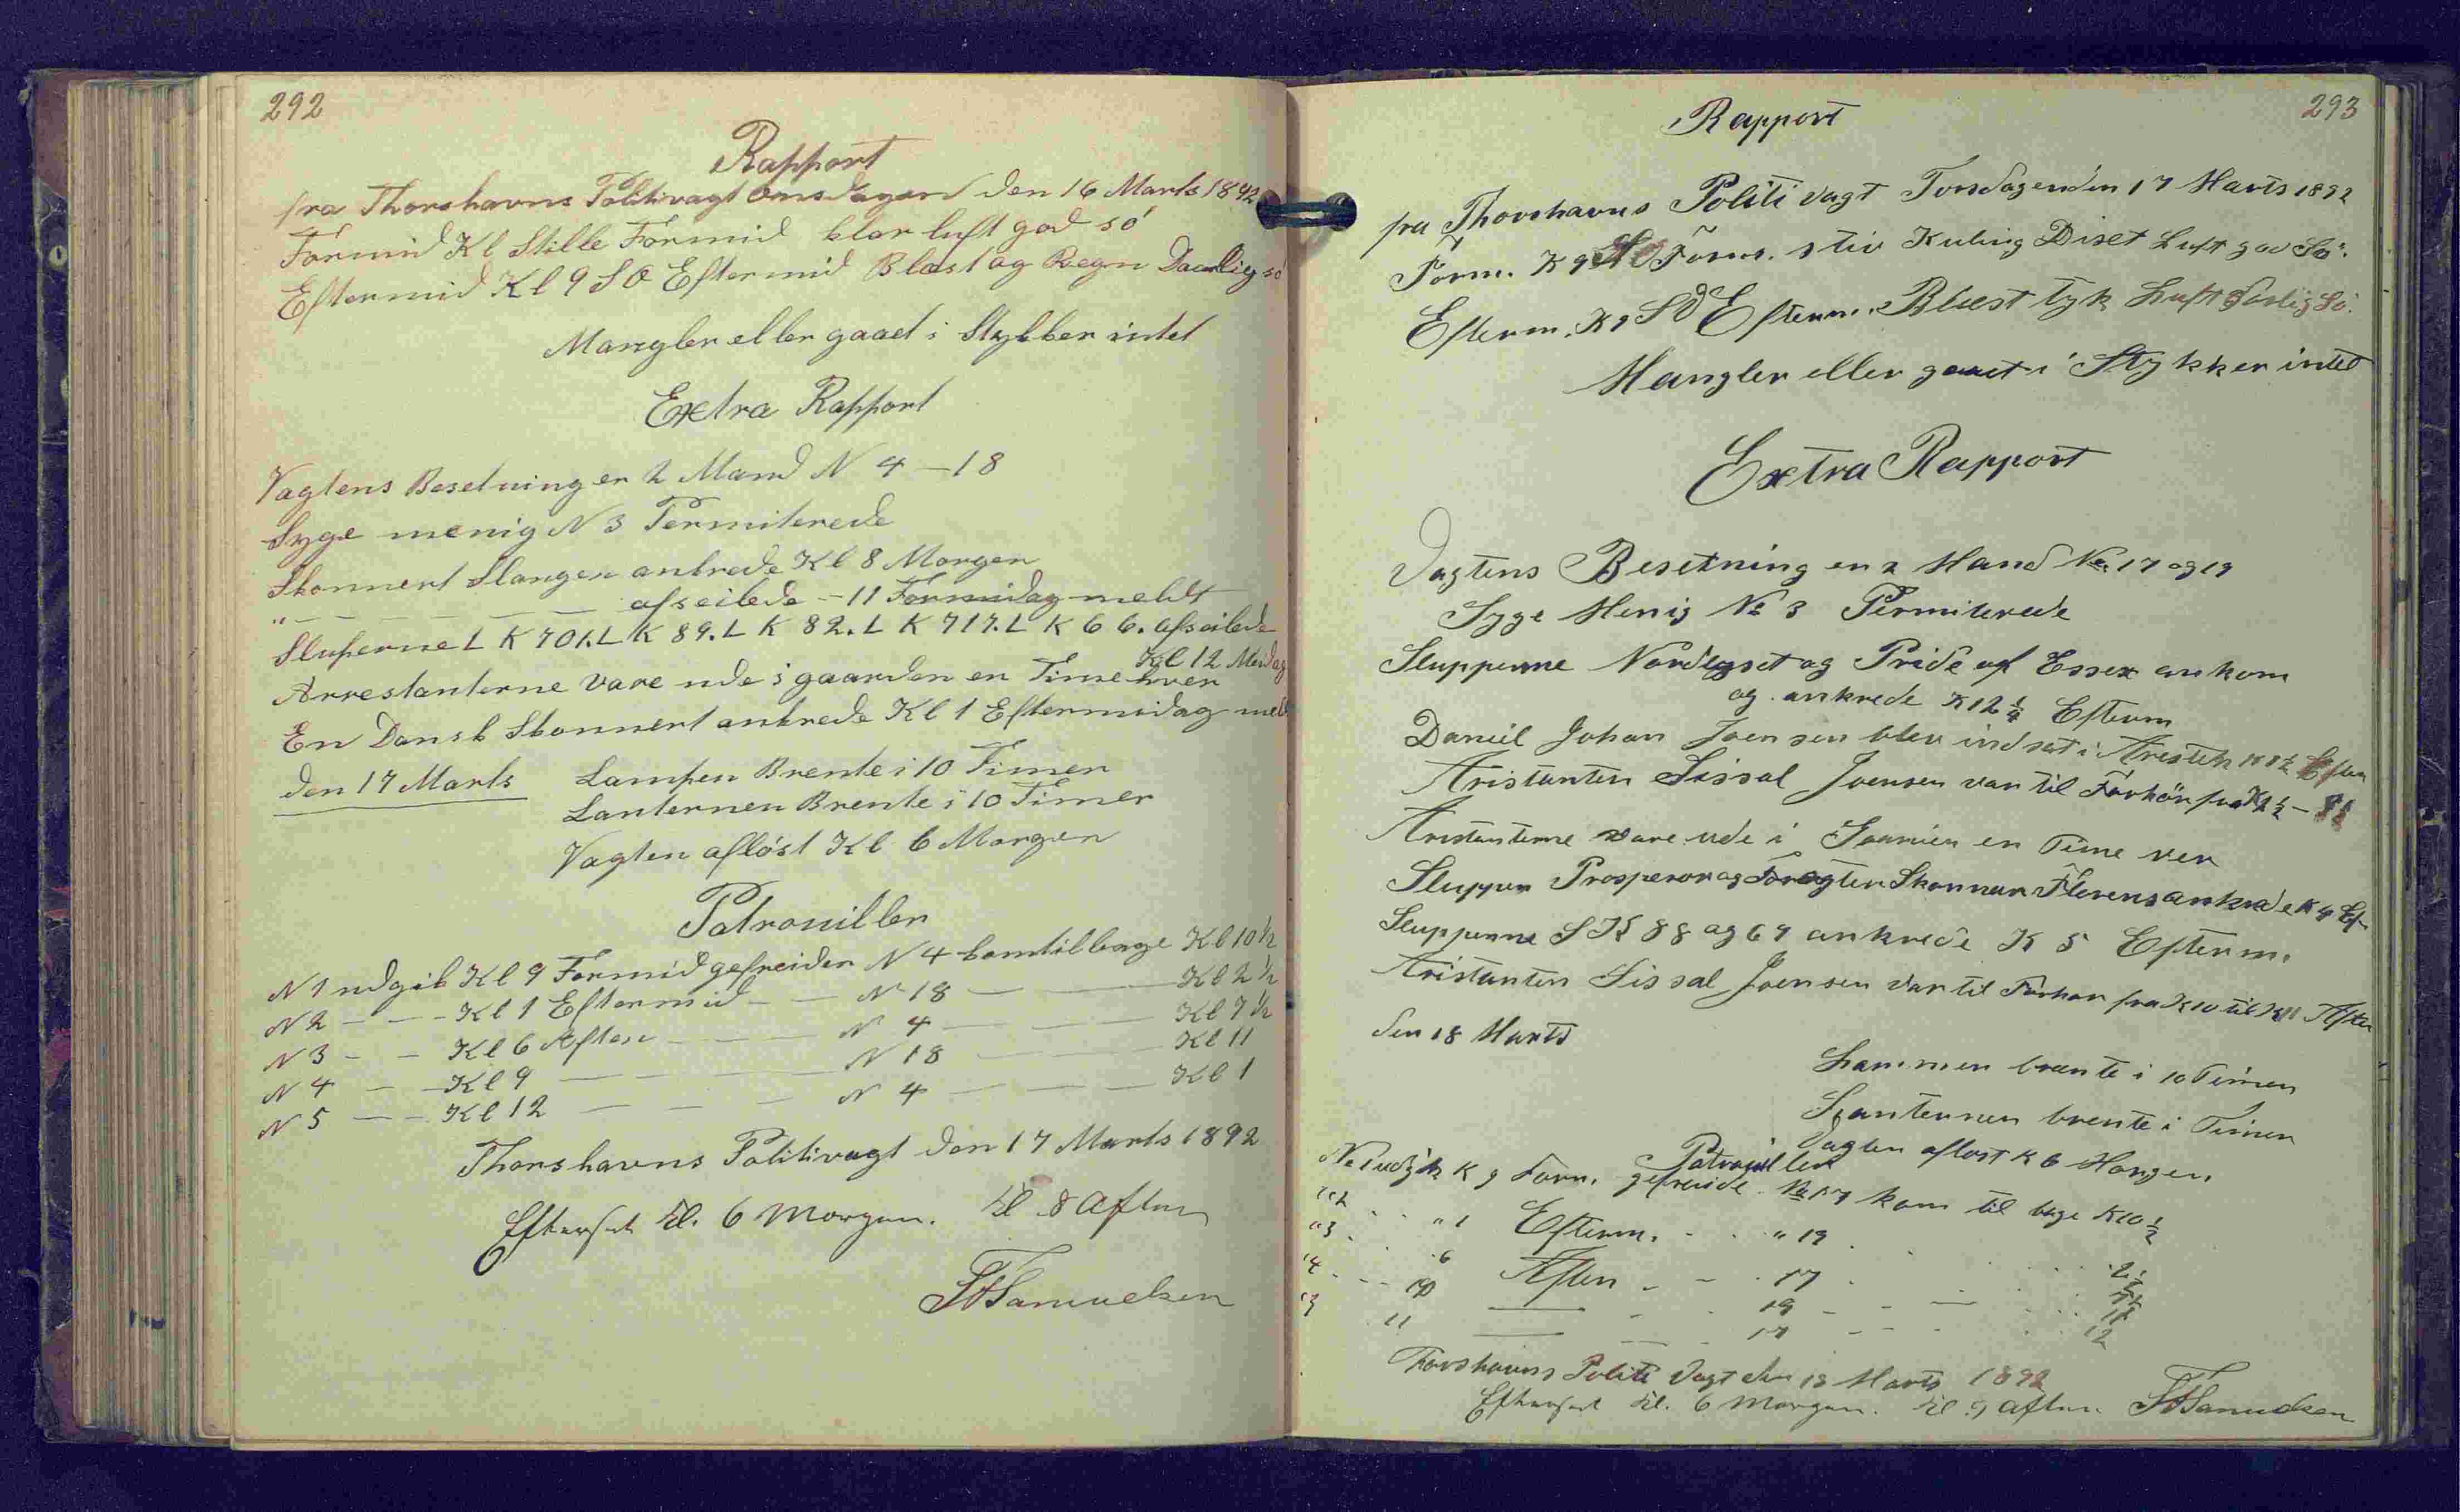 292
Rapport
fra Thorshavns Politivagt Onsdagen den 16 Marts 1892
Formid Kl Stille Formid klar luft god sö
Eftermid Kl 9 S O Eftermid Blæst og Regn Daarlig sö
Mangler eller gaaet i Stykker intet
Extra Rapport
Vagtens Besetning er 2 Mand N 4 — 18
Syge menig N 3 Permiterede
Skonnert Slangen ankrede Kl 8 Morgen
" — — — — — afseilede – 11 Formidag meldt
Sluperne L K 701. L K 89. L K 82. L K 717. L K 66. afseilede
Kl 12 Meidag
Arrestanterne vare ude i gaarden en Time hver
En Dansk Skonnert ankrede Kl 1 Eftermidag meldt
den 17 Marts Lampen Brente i 10 Timer
Lanternen Brente i 10 Timer
Vagten aflöst Kl 6 Morgen
Patrouiller
N 1 udgik Kl 9 Formid gefreider N 4 kom tilbage Kl 10 1/2
N 2 — — — Kl 1 Eftermid — — N 18 — — — Kl 2 1/2
N 3 — — Kl 6 Aften — — — N 4 — — — Kl 7 1/2
N 4 — — Kl 9 — — — — N 18 — — — Kl 11
N 5 — — Kl 12 — — — N 4 — — — Kl 1
Thorshavns Politivagt den 17 Marts 1892
Efterset Kl. 6 Morgen. Kl 8 Aften
Samuelsen
293
Rapport
fra Thorshavns Politi vagt Torsdagen den 17 Marts 1892
Form. K 9 Form. stiv Kuling Diset Luft god Sö.
Efterm. K 9 S O Efterm. Blæst tyk Luft Darlig Sö.
Mangler eller gaaet i Stykker inted
Extra Rapport
Vagtens Besetning er 2 Mand No. 17 og 19
Syge Menig No 3 Permiterede
Slupperne Nordlyset og Pride of Essex ankom
og ankrede K 12 1/4 Efterm
Daniel Johan Joensen blev indsat i Aresten K 8 1/2 Efterm
Aristanten Sissal Joensen var til Forhör fra K
Aristanterne vare ude i Gaarden en Time ver
Sluppen Prosperor og Skonnar Florens ankrede K 4 Ef
Slupperne S K 88 og 67 ankrede K 5 Efterm.
Aristanten Sissal Joensen var til Forhor fra K 10 til K 11 Aften
den 18 Marts
Lammen brente i 10 Timer
Lanternen brente i Timer
Vagten aflöst K 6 Morgen.
Patrouiller
No 1 udgik K 9 Form. gefreide No 17 kom til bage K 10 1/2
" 2 . . " 1 Efterm. . . " 19 . . . 2 1/2
" 3 . . . 6 Aften – – . 17 . . . 7 1/2
" 4 – – – 10 — – . 19 – – — . . 11
11 — — 17 – – . . 12
Torshavns Politi Vagt den 18 Marts 1892
Efterset Kl. 6 Morgen. Kl 9 Aften Samuelsen